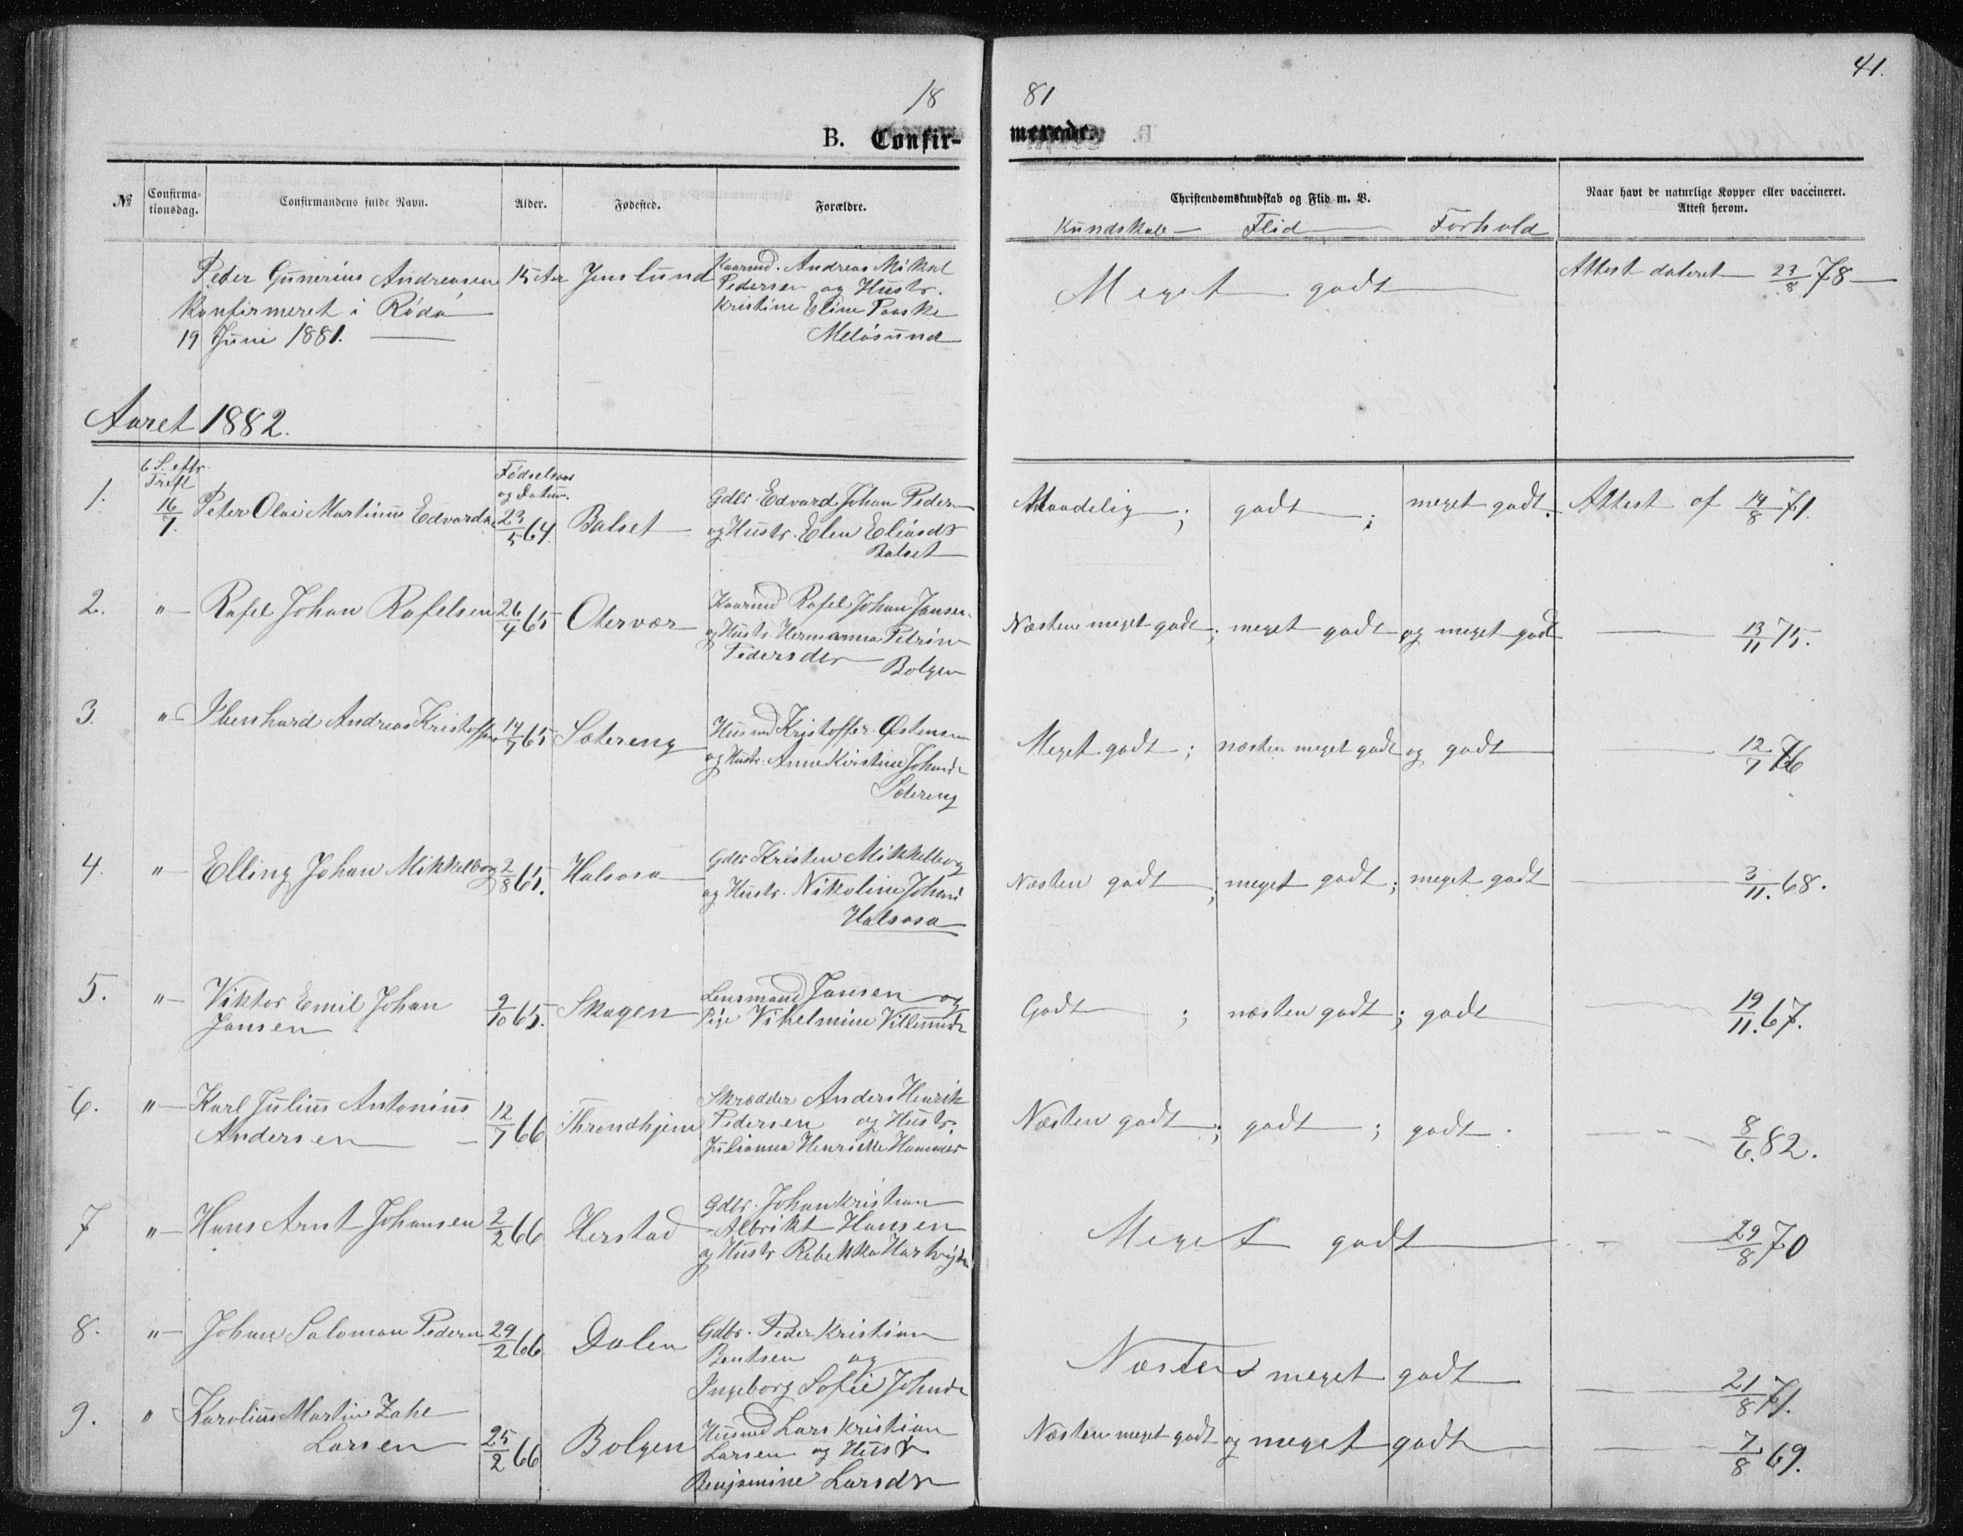 41.
18 81
B. Confir- merede.
№ Confirma- tionsdag. Confirmandens fulde Navn. Alder. Fødested. Forældre. Christendomskundskab og Flid m. V. Naar havt de naturlige Kopper eller vaccineret. Attest herom.
Kundskab Flid Forhold
Peder Gunerius Andreasen 15 Aar Jenslund Kaarmd. Andreas Mikal
Pedersen og Hustr.
Konfirmeret i Rödö Kristine Eline Paaske
19 Juni 1881. Melösund
Meget godt Attest dateret 23/8 78
Aaret 1882.
6 S. eftr. Treft Fødselsaar og Datum.
1. 16/7. Peter Olai Martinus Edvardsen 23/5 64. Balset Gdbr. Edvard Johan Peders
og Hustr. Elen Eliasdr
Balset
Maadelig ; godt ; meget godt. Attest af 14/8 71.
2. " Rafel Johan Rafelsen 26/4 65 Otervær Kaarmd Rafel Johan Jansen
og Hustr. Hermanna Petrine
Pedersdr Bolgen
Næsten meget godt ; meget godt og meget godt 13/11 75.
3. " Ibenhard Andreas Kristoffers 14/7 65 Sætereng Husmd Kristoffer Østensen
og Hustr. Anne Kirstine Johansdr
Sætereng
Meget godt ; næsten meget godt og godt 12/7 76
4. " Elling Johan Mikkelborg 2/8 65. Halsosa Gdbr Kristen Mikkelborg
og Hustr. Nikoline Johans
Halsosa
Næsten godt ; meget godt ; meget godt 3/11. 68.
5. " Viktor Emil Johan
Jansen 9/10 65. Skagen Lensmand Jansen og
Pige Vilhelmine Villumsdr
Godt ; næsten godt ; godt 19/11. 67.
6. " Karl Julius Antonius
Andersen 12/7 66 Throndhjem Skrædder Anders Henrik
Pedersen og Hustr.
Julianna Henrikke Hammer
Næsten godt ; godt ; godt. 8/6. 82.
7 " Hans Arnt Johansen 2/2 66 Herstad Gdbr. Johan Kristian
Albrikt Hansen
og Hustr Rebekka Hartvigsdr
Meget godt 29/8 70
8. " Johan Salomon Peders 29/2 66 Dalen Gdbr. Peder Kristian
Bentsen og
Ingeborg Sofie Johnsdr
Næsten meget godt 21/8 71.
9. " Karolius Martin Zahl
Larsen 25/2 66 Bolgen Husmd Lars Kristian
Larsen og Hustr
Benjamine Larsdr
Næsten meget godt og meget godt 7/8 69.